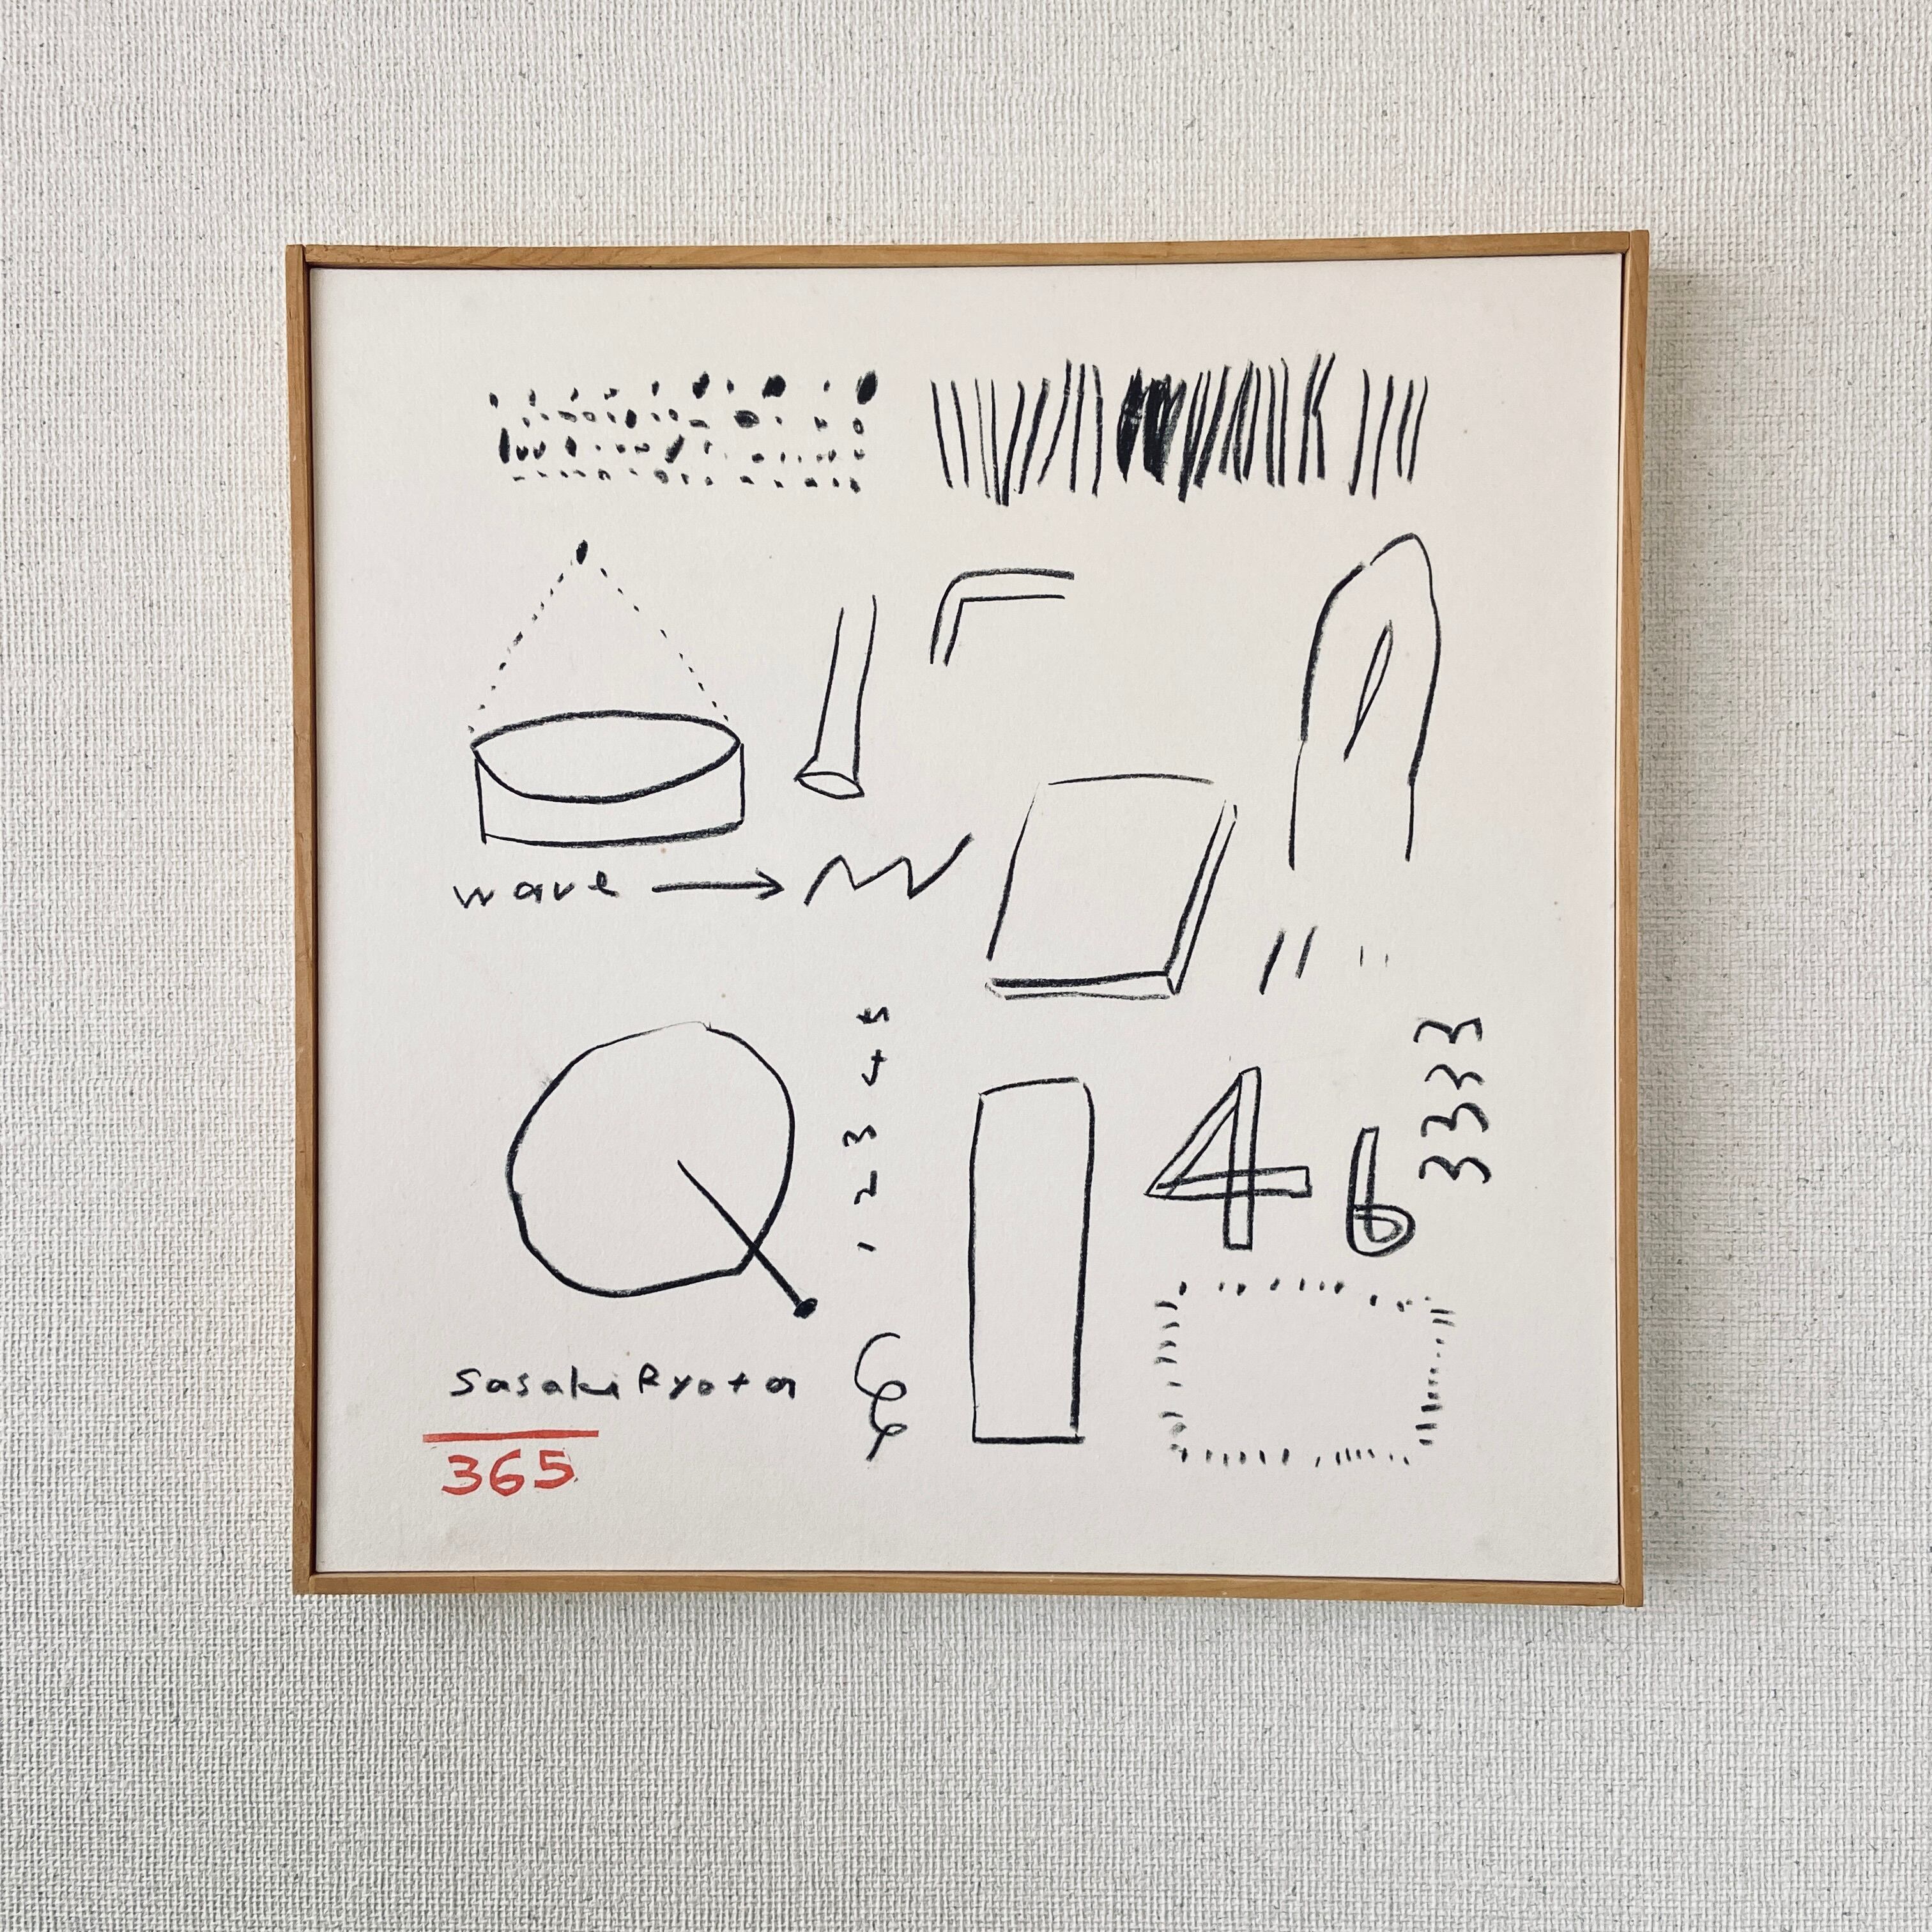 wave →
1 2 3 4 5
4 6
3 3 3 3
Sasaki Ryota
365